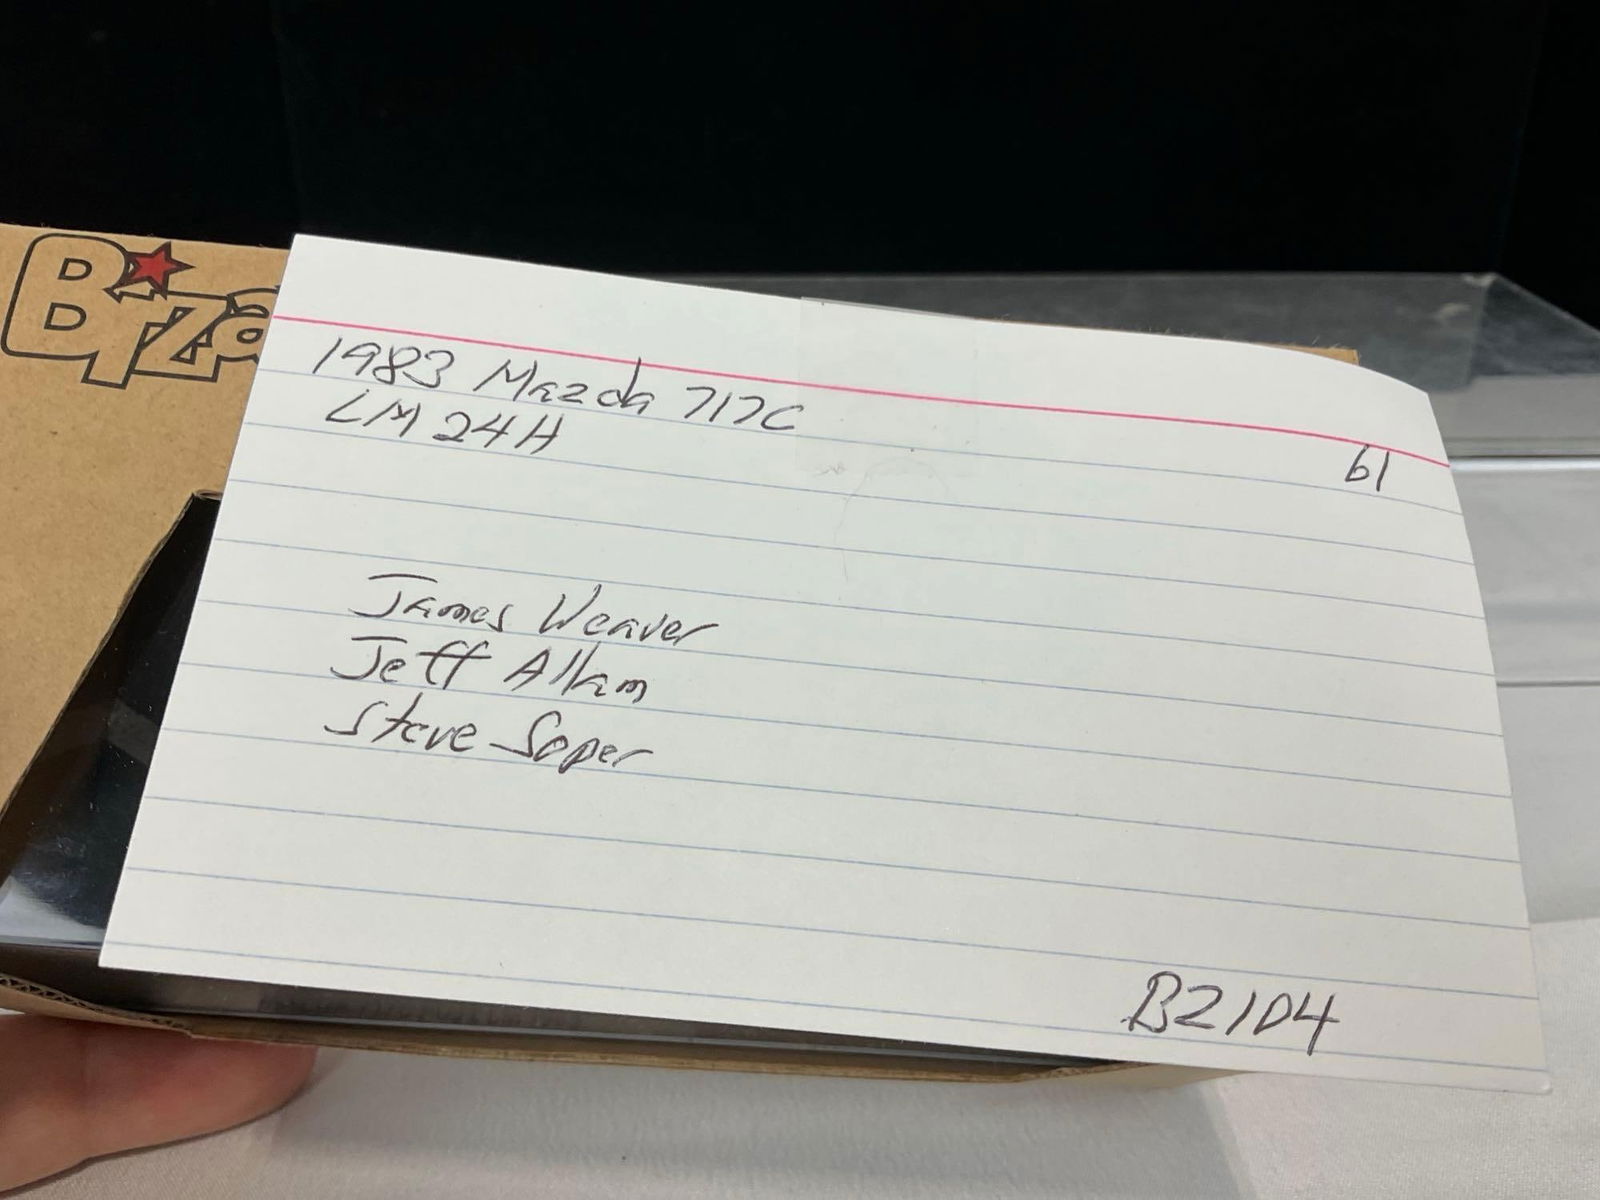 Biza
1983 Mazda 717C
LM 24H
61
James Weaver
Jeff Allam
Steve Soper
BZ104